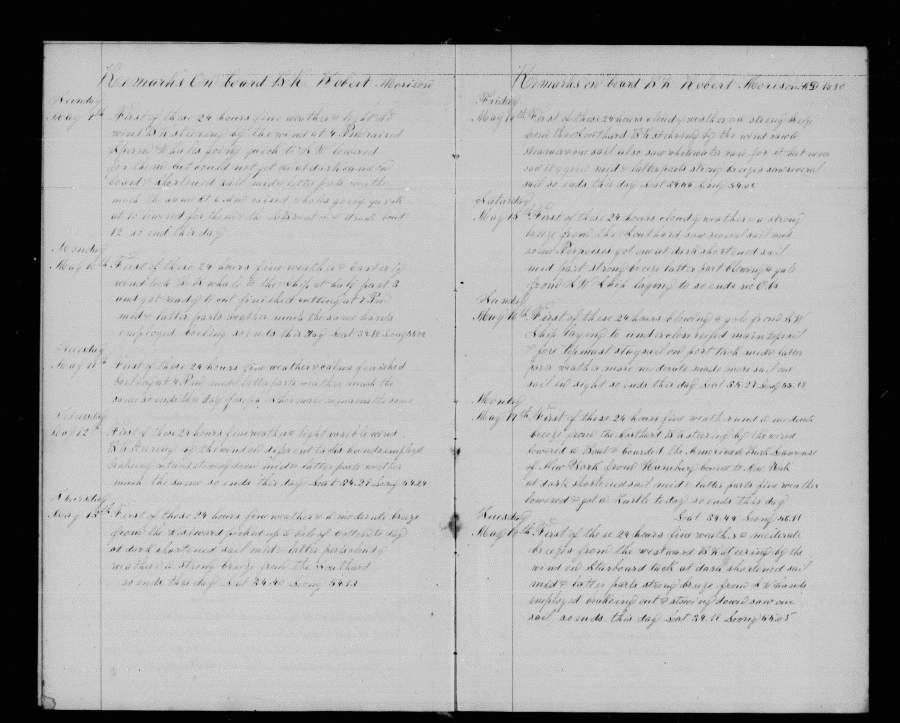 Remarks on board Bk Robert Morison
Sunday
May 9th First of these 24 hours fine weather & light
wind Bk steering by the wind at 4 Pm raised
Sperm whales going quick to lowered
for them but could not get on at dark came on
board & shortened sail mid & latter parts weather
much the same at 6 Am raised whales going quick
at 10 lowered for them the & struck one
12 so end this day
Monday
May 10th First of these 24 hours fine weather & Easterly
wind took whale to the Ship at half past 3
and got ready to cut finished cutting at 7 Pm
mid & latter parts weather much the same hands
employed boiling so ends this day Lat Long
Tuesday
May 11th First of these 24 hours fine weather & calm finished
boiling at 4 Pm mid & latter parts weather much the
same so ends this day remains the same
Wednesday
May 12th First of these 24 hours fine weather & light variable wind
Bk steering by the wind on different tacks hands employed
breaking out and stowing down mid & latter parts weather
much the same so ends this day Lat 34.27 Long 54.24
Thursday
May 13th First of these 24 hours fine weather & a moderate breeze
from the Westward picked up a bale of cotton to day
at dark shortened sail mid & latter parts cloudy
weather & a strong breeze from the Southard
so ends this day Lat 34.40 Long
Remarks on board Bk Robert Morison AD 1880
Friday
May 14th First of these 24 hours cloudy weather & a strong breeze
from the Southard Bk steering by the wind saw a
steamer one sail also saw white water run for it but never
saw it again mid & latter parts strong breezes saw several
sail so ends this day Lat 34.44 Long
Saturday
May 15th First of these 24 hours cloudy weather & a strong
breeze from the Southard saw several sail and
some Porpoises got one at dark shortened sail
mid part strong breeze latter part blowing a gale
from Ship laying to so ends no Obs
Sunday
May 16th First of these 24 hours blowing a gale from
Ship laying to under close reefed main topsail
& fore topmast staysail on port tack mid & latter
parts weather more moderate made more sail one
sail in sight so ends this day Lat 35.27 Long 53.18
Monday
May 17th First of these 24 hours fine weather and a moderate
breeze from the Eastward Bk steering by the wind
lowered a Boat & boarded the American Bark
of New York from Hamburg bound to New York
at dark shortened sail mid & latter parts fine weather
lowered & got a Turtle to day so ends this day
Lat 34.44 Long
Tuesday
May 18th First of these 24 hours fine weather & a moderate
breeze from the westward Bk steering by the
wind on Starboard tack at dark shortened sail
mid & latter parts strong breeze from hands
employed breaking out & stowing down saw one
sail so ends this day Lat 34.11 Long